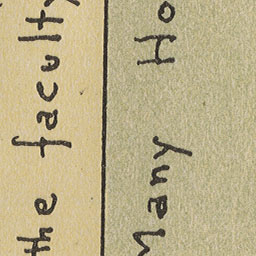 the faculty
Many Ho